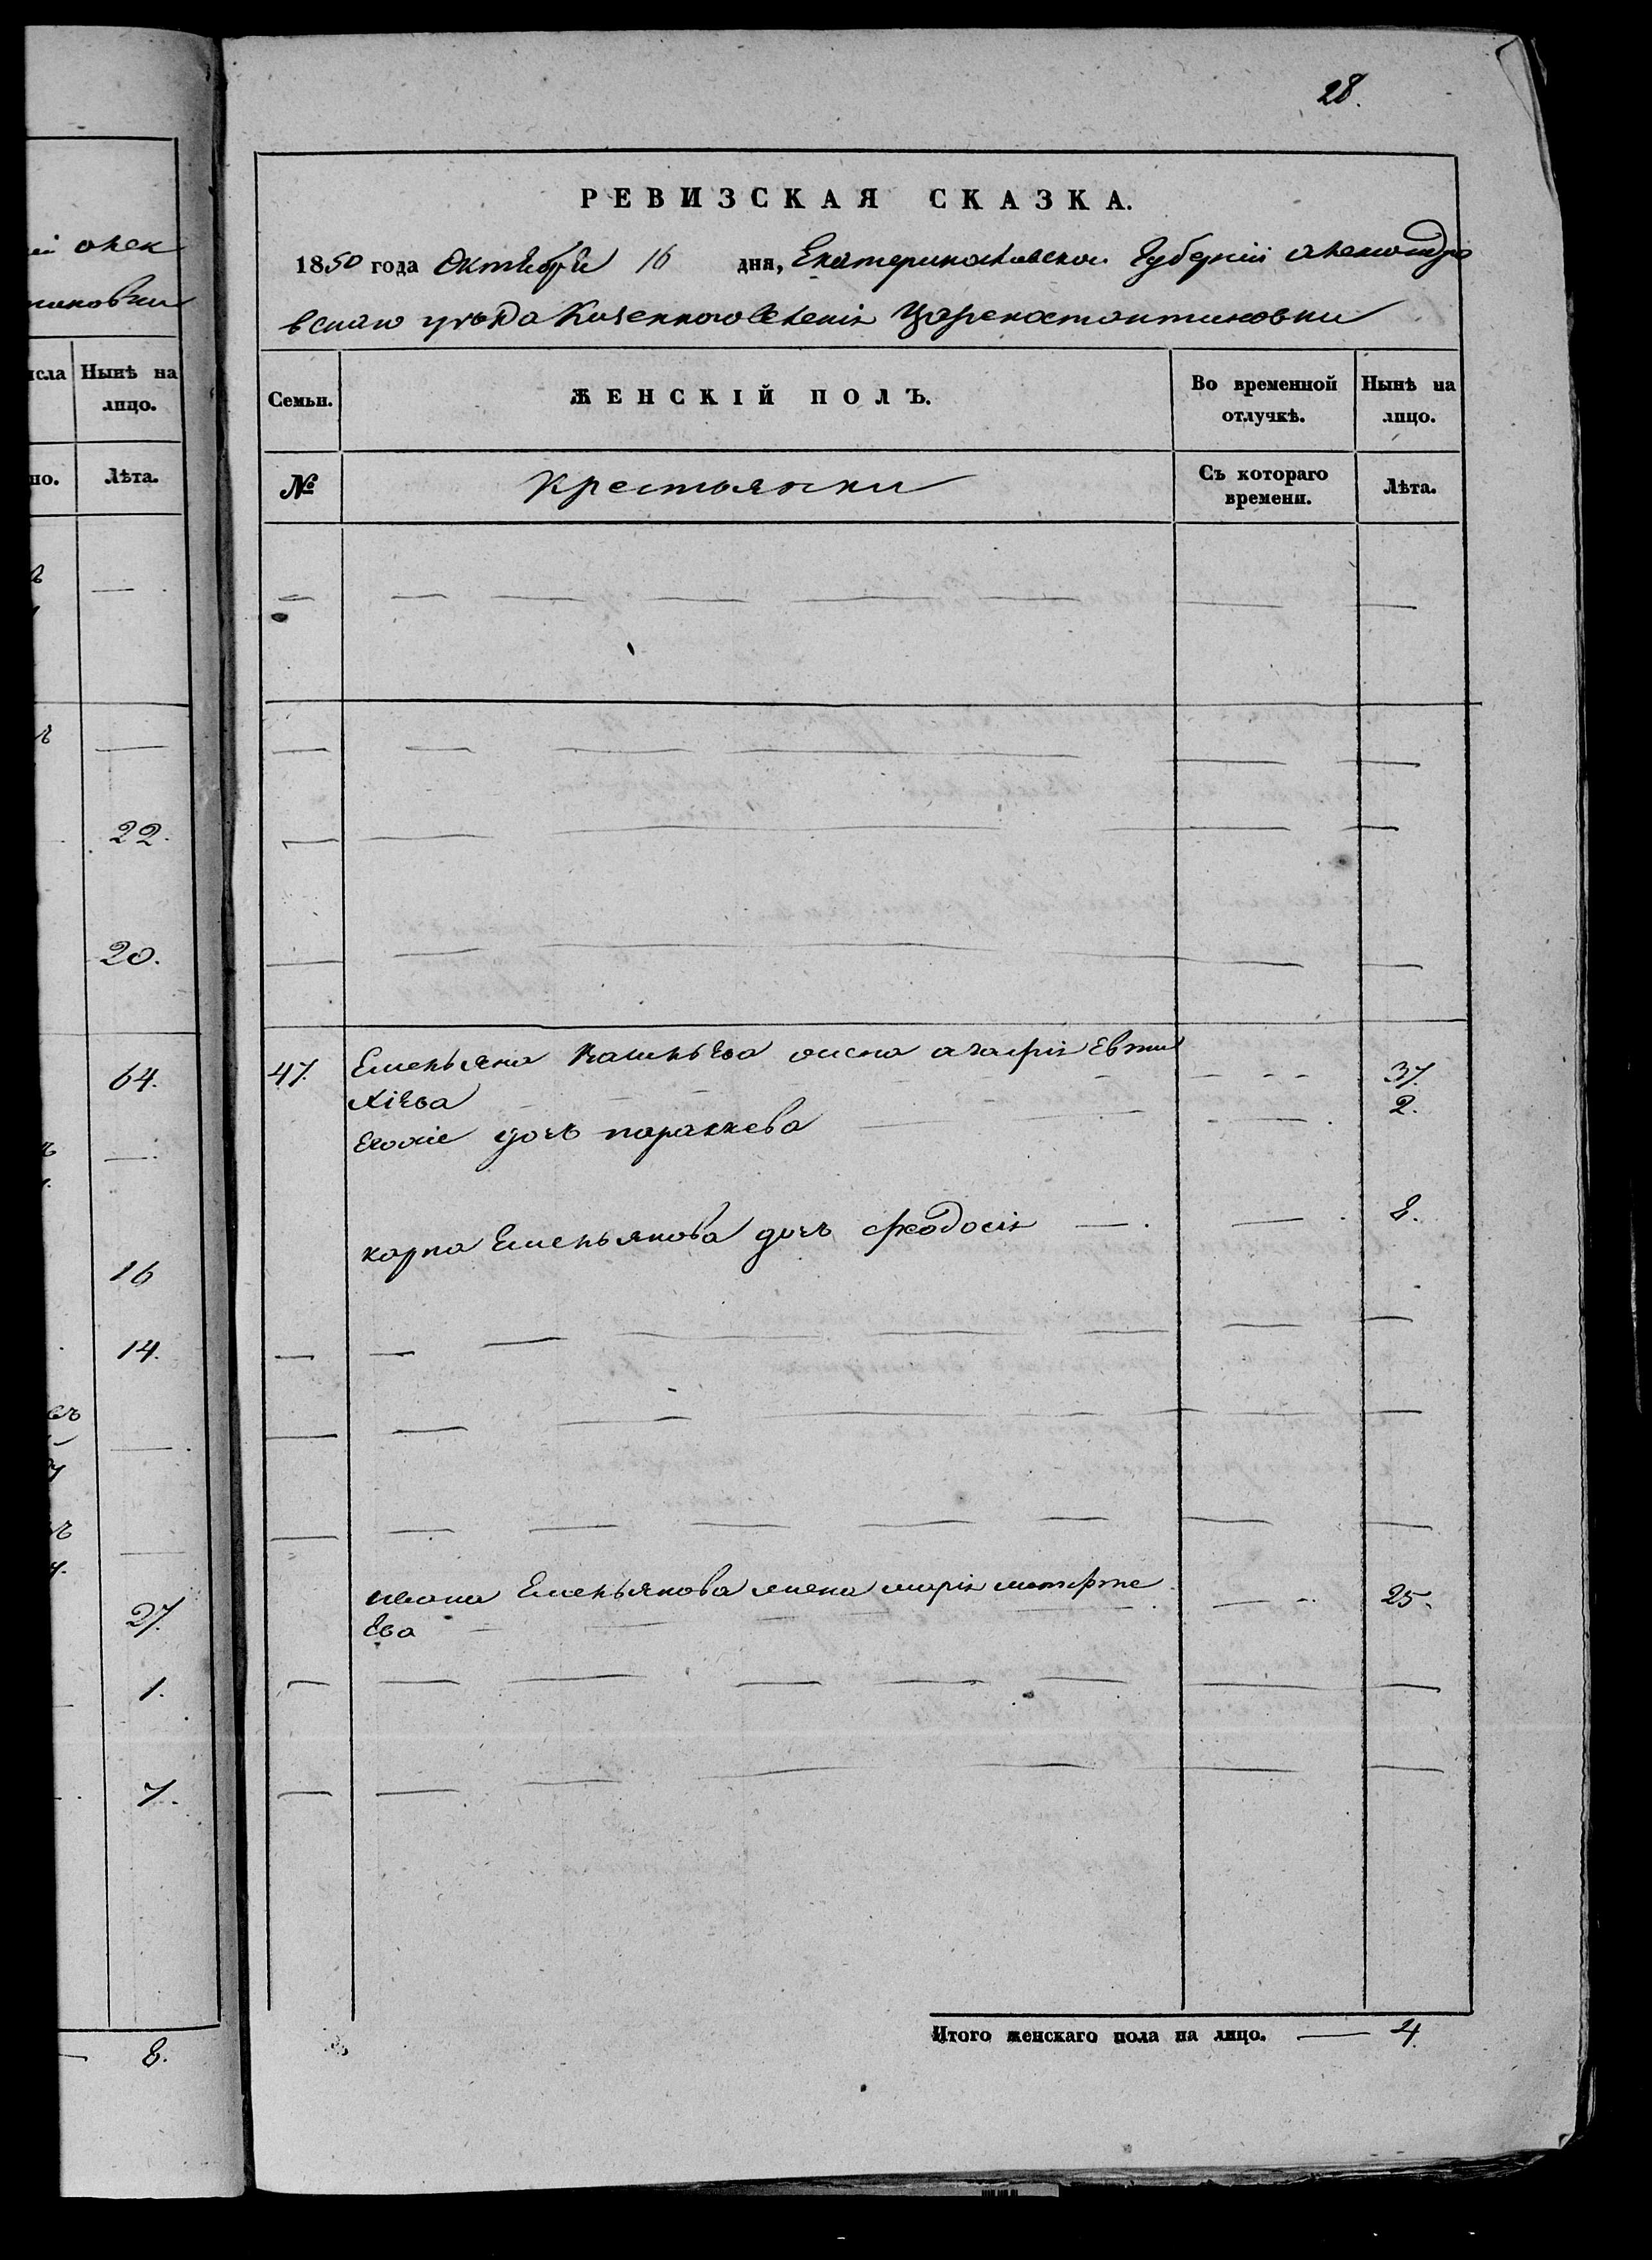 28.
РЕВИЗСКАЯ СКАЗКА.
1850 года Октября 16 дня, Екатеринославской Губернии Александро
вскаго уезда Казенного Селенія Цареконстантиновки
Семьи.
ЖЕНСКІЙ ПОЛЪ.
Во временной отлучкѣ.
Нынѣ на лицо.
№
Крестьянки
Съ котораго времени.
Лѣта.
47.
Емельяна жена агафія Евти
хіева
37.
дочь параскева
2.
карпа Емельянова дочь феодосія
8.
ивана Емельянова жена марія матфее
ева
25.
Итого женскаго пола на лицо. 4.
Нынѣ на лицо.
Лѣта.
22.
20.
64.
16
14.
27.
1.
7.
8.